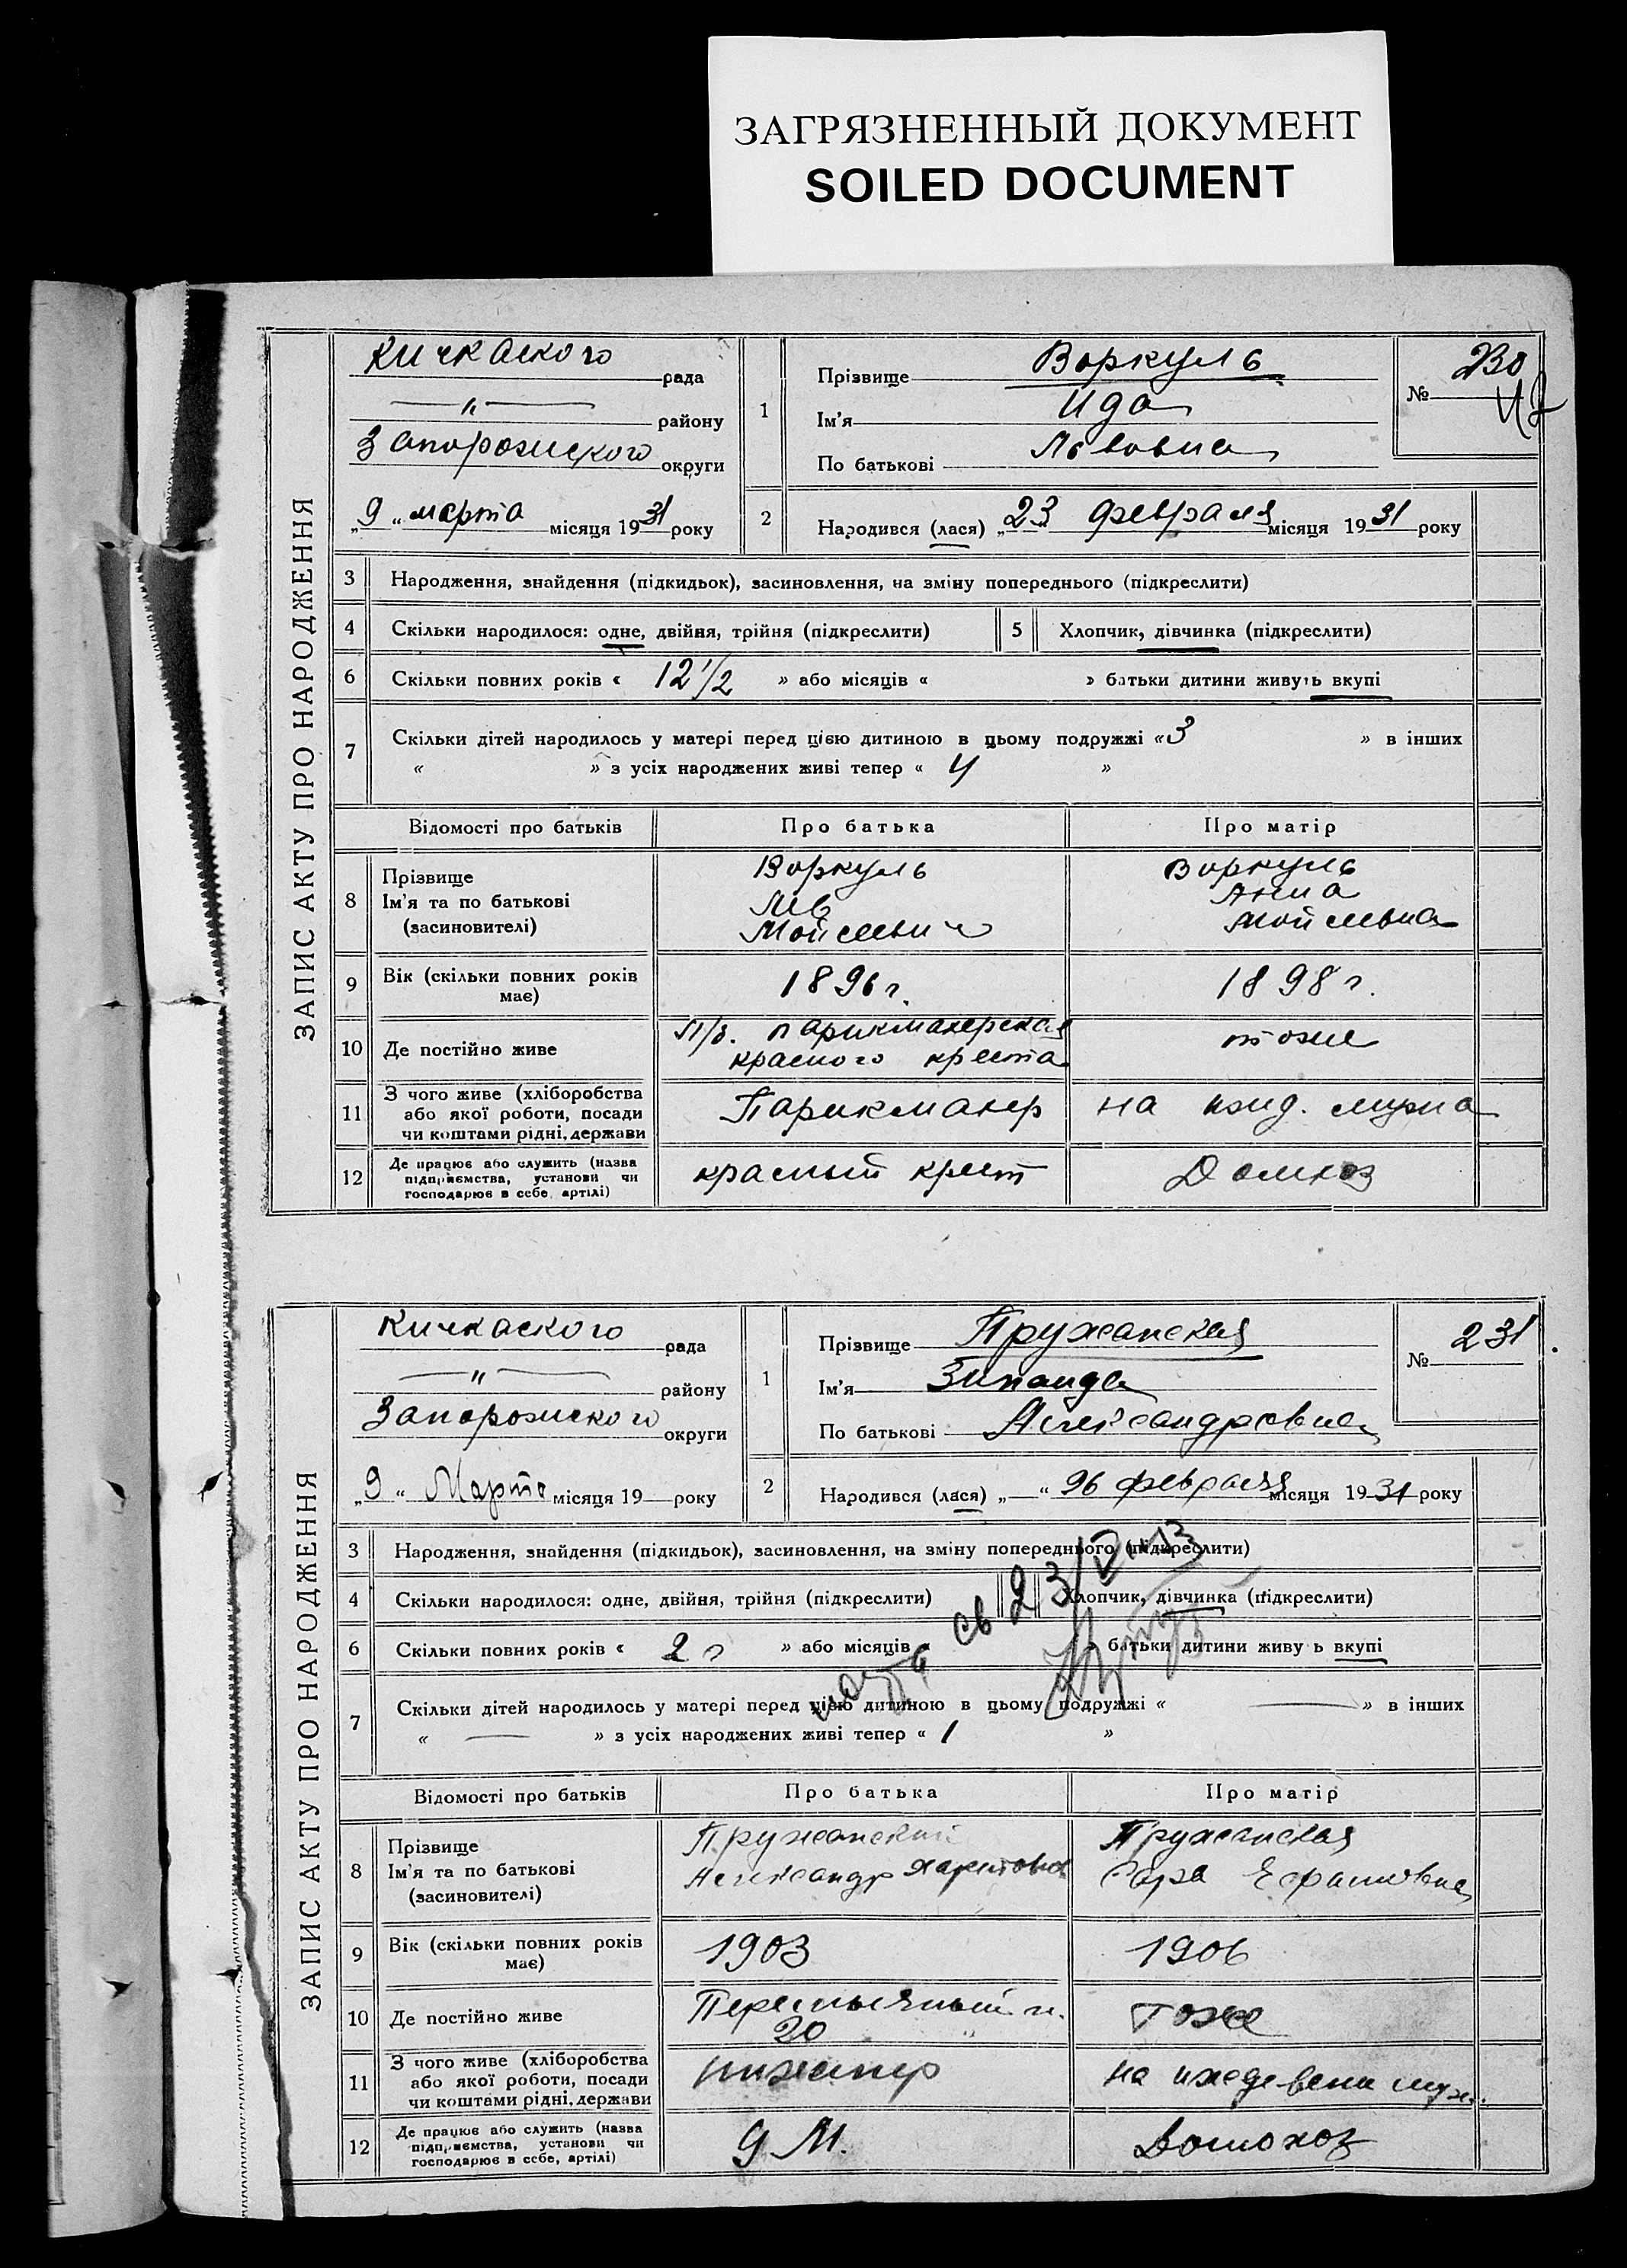 ЗАГРЯЗНЕННЫЙ ДОКУМЕНТ
SOILED DOCUMENT
ЗАПИС АКТУ ПРО НАРОДЖЕННЯ
Кичкаского рада
—"— району
Запорожского округи
„9“ марта місяця 1931 року
1
Прізвище Воркуль
Ім'я Ида
По батькові Львовна
№ 230
2 Народився (лася) „23 февраля місяця 1931 року
3 Народження, знайдення (підкидьок), засиновлення, на зміну попереднього (підкреслити)
4 Скільки народилося: одне, двійня, трійня (підкреслити) 5 Хлопчик, дівчинка (підкреслити)
6 Скільки повних років « 12 1/2 » або місяців « » батьки дитини живуть вкупі
7 Скільки дітей народилось у матері перед цією дитиною в цьому подружжі «3 » в інших
« » з усіх народжених живі тепер « 4 »
Відомості про батьків Про батька Про матір
8 Прізвище
Ім'я та по батькові
(засиновителі)
Воркуль
Лев
Мойсеевич
Воркуль
Анна
Мойсеевна
9 Вік (скільки повних років
має)
1896 г.
1898 г.
10 Де постійно живе
парикмахерская
красного креста
тоже
11 З чого живе (хліборобства
або якої роботи, посади
чи коштами рідні, держави
Парикмахер
на ижд. мужа
12 Де працює або служить (назва
підприємства, установи чи
господарює в себе, артілі)
красный крест
Домхоз
ЗАПИС АКТУ ПРО НАРОДЖЕННЯ
Кичкаского рада
—"— району
Запорожского округи
„9“ Марта місяця 19 року
1
Прізвище Пружанская
Ім'я Зинаида
По батькові Александровна
№ 231
2 Народився (лася) „—“ 26 февраля місяця 1931 року
3 Народження, знайдення (підкидьок), засиновлення, на зміну попереднього (підкреслити)
4 Скільки народилося: одне, двійня, трійня (підкреслити) Хлопчик, дівчинка (підкреслити)
6 Скільки повних років « 2 г » або місяців « » батьки дитини живу ь вкупі
7 Скільки дітей народилось у матері перед цією дитиною в цьому подружжі « — » в інших
« — » з усіх народжених живі тепер « 1 »
Відомості про батьків Про батька Про матір
8 Прізвище
Ім'я та по батькові
(засиновителі)
Пружанский
Александр Харитонов
Пружанская
Сара Ефраимовна
9 Вік (скільки повних років
має)
1903
1906
10 Де постійно живе
20
тоже
11 З чого живе (хліборобства
або якої роботи, посади
чи коштами рідні, держави
инженер
на иждевени муж.
12 Де працює або служить (назва
підприємства, установи чи
господарює в себе, артілі)
Домохоз